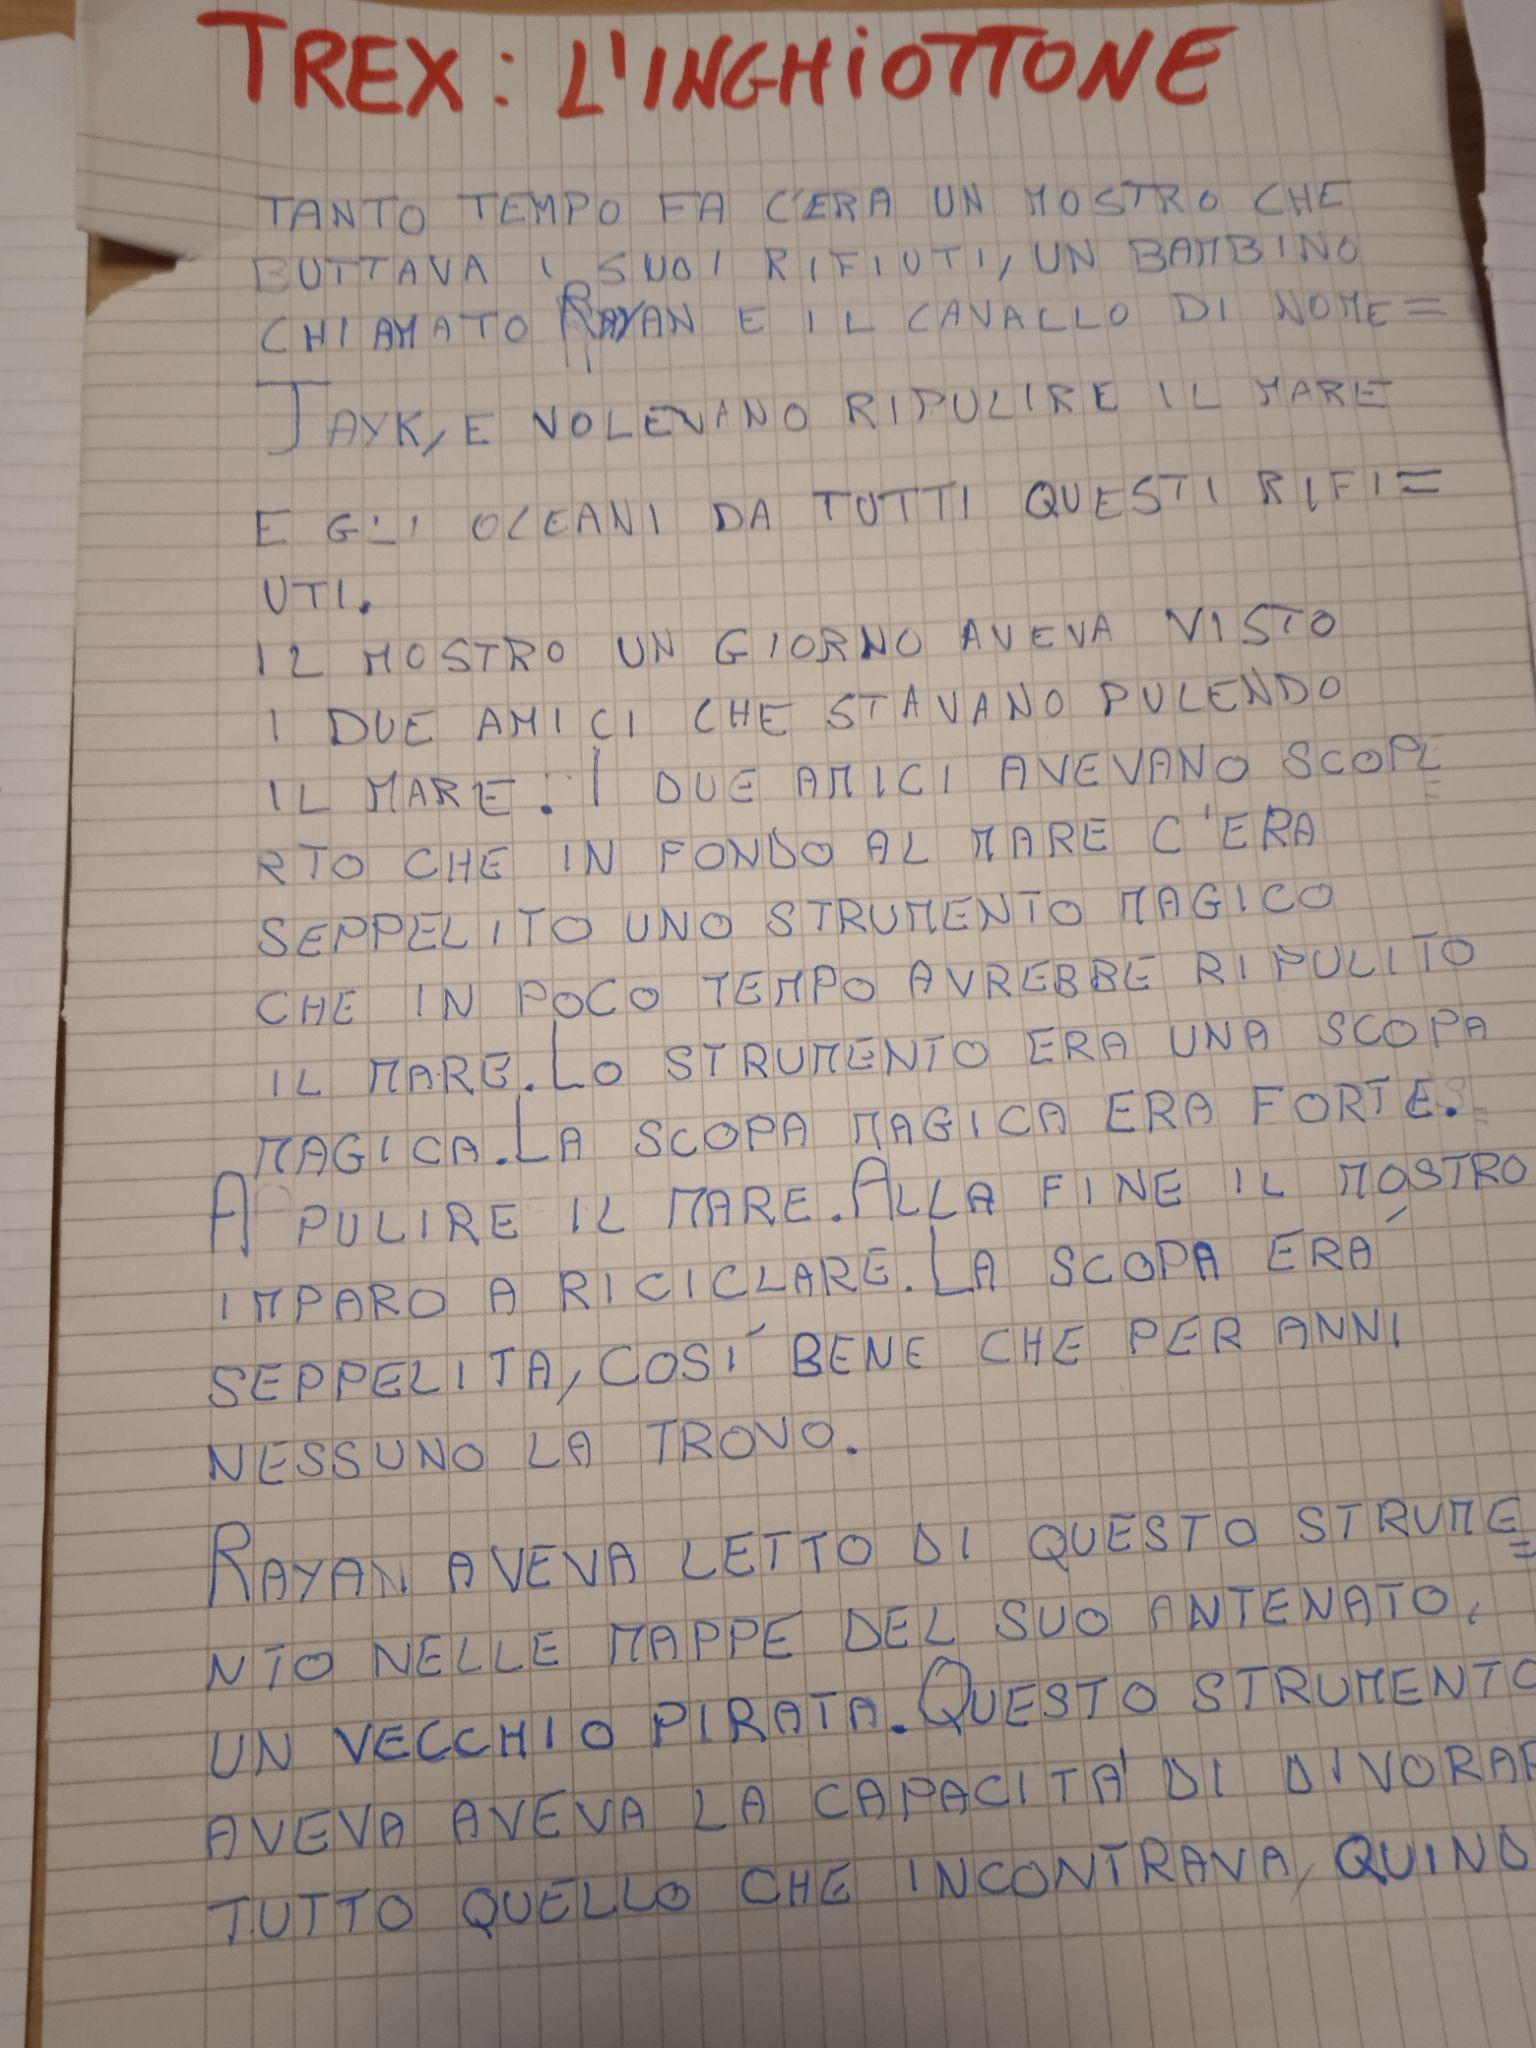 TREX: L'INGHIOTTONE
TANTO TEMPO FA C'ERA UN MOSTRO CHE
BUTTAVA I SUOI RIFIUTI, UN BAMBINO
CHIAMATO RAYAN E IL CAVALLO DI NOME=
JAYK, E VOLEVANO RIPULIRE IL MARE
E GLI OCEANI DA TUTTI QUESTI RIFI=
UTI.
IL MOSTRO UN GIORNO AVEVA VISTO
I DUE AMICI CHE STAVANO PULENDO
IL MARE. I DUE AMICI AVEVANO SCOPE=
RTO CHE IN FONDO AL MARE C'ERA
SEPPELITO UNO STRUMENTO MAGICO
CHE IN POCO TEMPO AVREBBE RIPULITO
IL MARE. LO STRUMENTO ERA UNA SCOPA
MAGICA. LA SCOPA MAGICA ERA FORTE.
A PULIRE IL MARE. ALLA FINE IL MOSTRO
IMPARO A RICICLARE. LA SCOPA ERA
SEPPELITA, COSÍ BENE CHE PER ANNI
NESSUNO LA TROVO.
RAYAN AVEVA LETTO DI QUESTO STRUME=
NTO NELLE MAPPE DEL SUO ANTENATO,
UN VECCHIO PIRATA. QUESTO STRUMENTO
AVEVA AVEVA LA CAPACITA' DI DIVORAR
TUTTO QUELLO CHE INCONTRAVA, QUIND